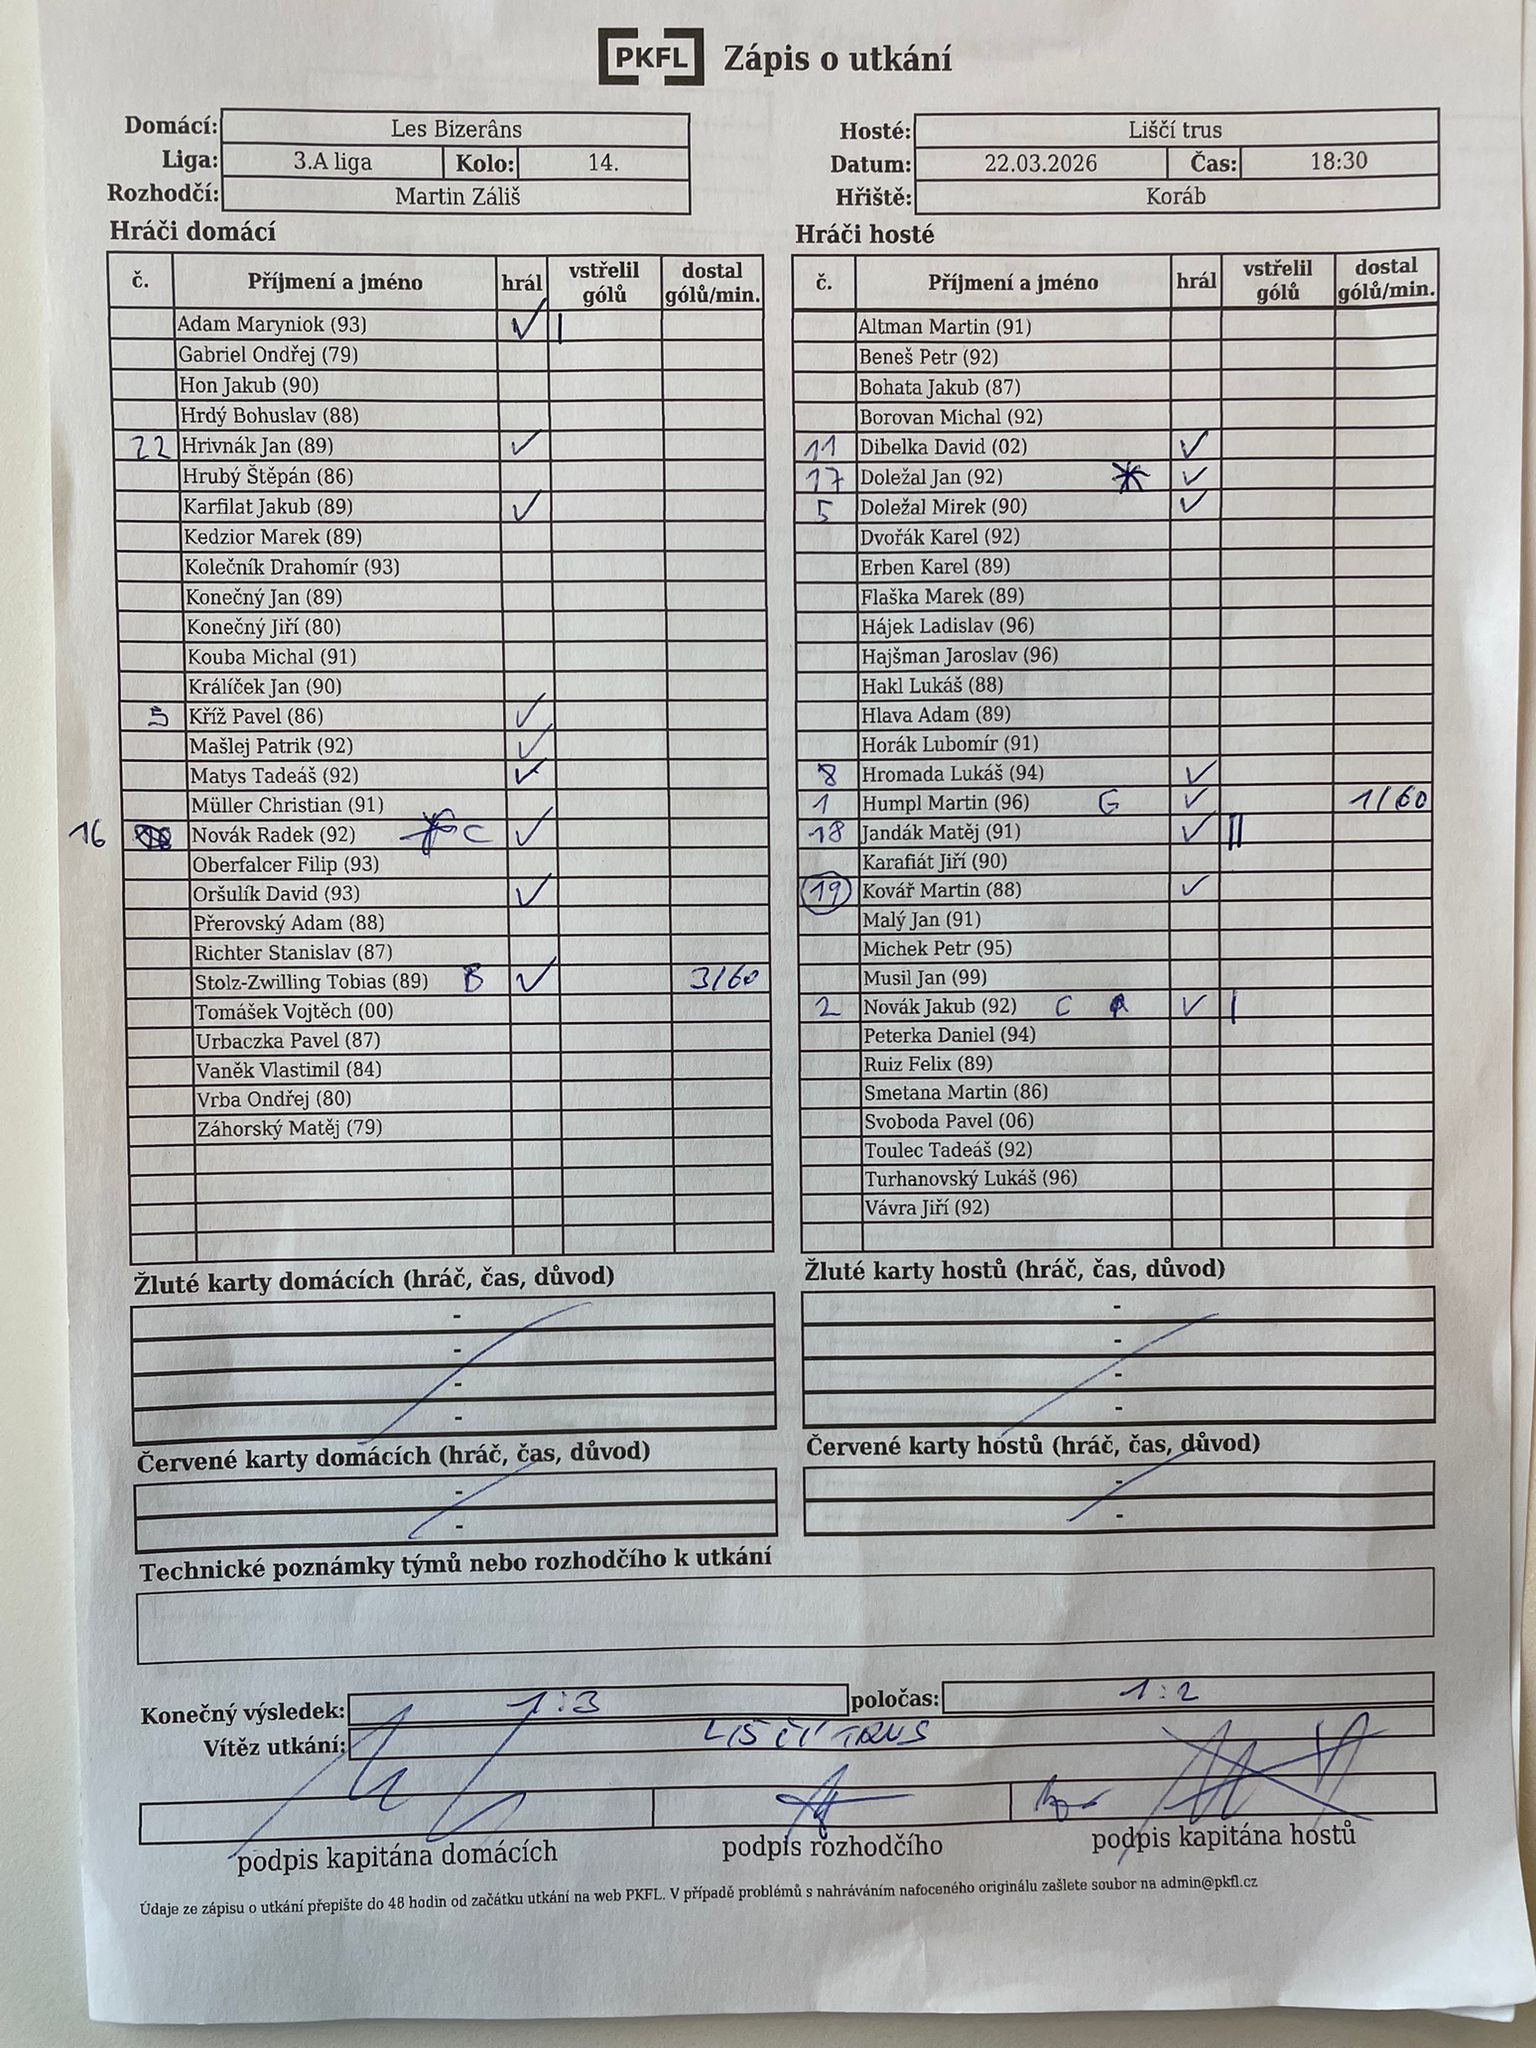 PKFL Zápis o utkání
Domácí: Les Bizerâns
Liga: 3.A liga Kolo: 14.
Rozhodčí: Martin Záliš
Hosté: Liščí trus
Datum: 22.03.2026 Čas: 18:30
Hřiště: Koráb
Hráči domácí
č. Příjmení a jméno hrál vstřelil gólů dostal gólů/min.
Adam Maryniok (93) ✓ |
Gabriel Ondřej (79)
Hon Jakub (90)
Hrdý Bohuslav (88)
22 Hrivnák Jan (89) ✓
Hrubý Štěpán (86)
Karfilat Jakub (89) ✓
Kedzior Marek (89)
Kolečník Drahomír (93)
Konečný Jan (89)
Konečný Jiří (80)
Kouba Michal (91)
Králíček Jan (90)
5 Kříž Pavel (86) ✓
Mašlej Patrik (92) ✓
Matys Tadeáš (92) ✓
Müller Christian (91)
16 Novák Radek (92) C ✓
Oberfalcer Filip (93)
Oršulík David (93) ✓
Přerovský Adam (88)
Richter Stanislav (87)
Stolz-Zwilling Tobias (89) B ✓ 3/60
Tomášek Vojtěch (00)
Urbaczka Pavel (87)
Vaněk Vlastimil (84)
Vrba Ondřej (80)
Záhorský Matěj (79)
Hráči hosté
č. Příjmení a jméno hrál vstřelil gólů dostal gólů/min.
Altman Martin (91)
Beneš Petr (92)
Bohata Jakub (87)
Borovan Michal (92)
11 Dibelka David (02) ✓
17 Doležal Jan (92) * ✓
5 Doležal Mirek (90) ✓
Dvořák Karel (92)
Erben Karel (89)
Flaška Marek (89)
Hájek Ladislav (96)
Hajšman Jaroslav (96)
Hakl Lukáš (88)
Hlava Adam (89)
Horák Lubomír (91)
8 Hromada Lukáš (94) ✓
1 Humpl Martin (96) G ✓ 1/60
18 Jandák Matěj (91) ✓ ||
Karafiát Jiří (90)
19 Kovář Martin (88) ✓
Malý Jan (91)
Michek Petr (95)
Musil Jan (99)
2 Novák Jakub (92) C ✓ |
Peterka Daniel (94)
Ruiz Felix (89)
Smetana Martin (86)
Svoboda Pavel (06)
Toulec Tadeáš (92)
Turhanovský Lukáš (96)
Vávra Jiří (92)
Žluté karty domácích (hráč, čas, důvod)
-
-
-
-
Žluté karty hostů (hráč, čas, důvod)
-
-
-
-
Červené karty domácích (hráč, čas, důvod)
-
-
Červené karty hostů (hráč, čas, důvod)
-
-
Technické poznámky týmů nebo rozhodčího k utkání
Konečný výsledek: 1:3 poločas: 1:2
Vítěz utkání: LIŠČÍ TRUS
podpis kapitána domácích podpis rozhodčího podpis kapitána hostů
Údaje ze zápisu o utkání přepište do 48 hodin od začátku utkání na web PKFL. V případě problémů s nahráváním nafoceného originálu zašlete soubor na admin@pkfl.cz